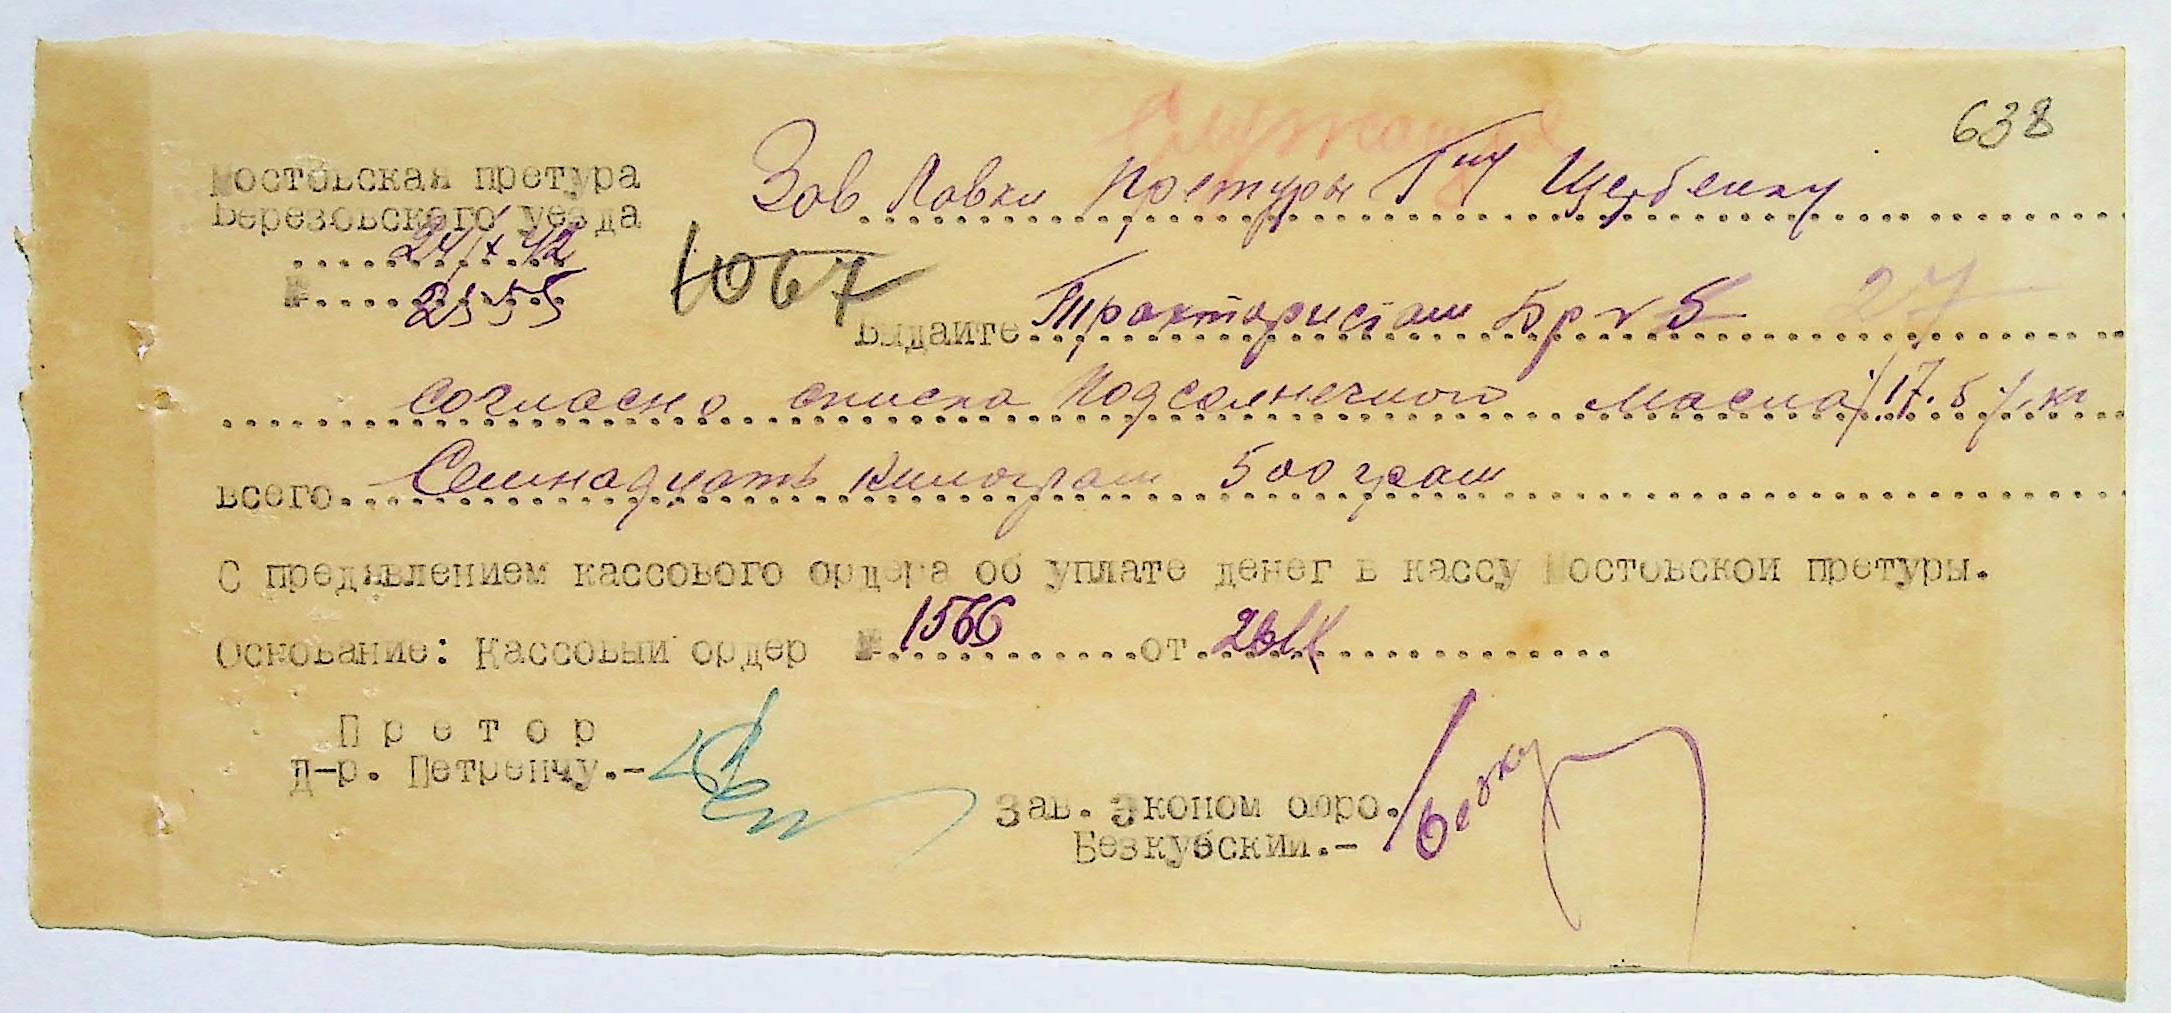 Служащие
638
Мостовская претура
Березовского уезда
Зав Лавки Претуры Гну Щербенку
24/X 42
№ 2555
1067
Выдайте Трактористам Бр № 5 27
согласно списка Подсолнечного масла /17.5/ кг
всего Семнадцать килограм 500 грам
С предявлением кассового ордера об уплате денег в кассу Мостовской претуры.
Основание: Кассовый ордер № 1566 от
Претор
Д-р. Петренчу.-
Зав. Эконом бюро.
Безкубский.-